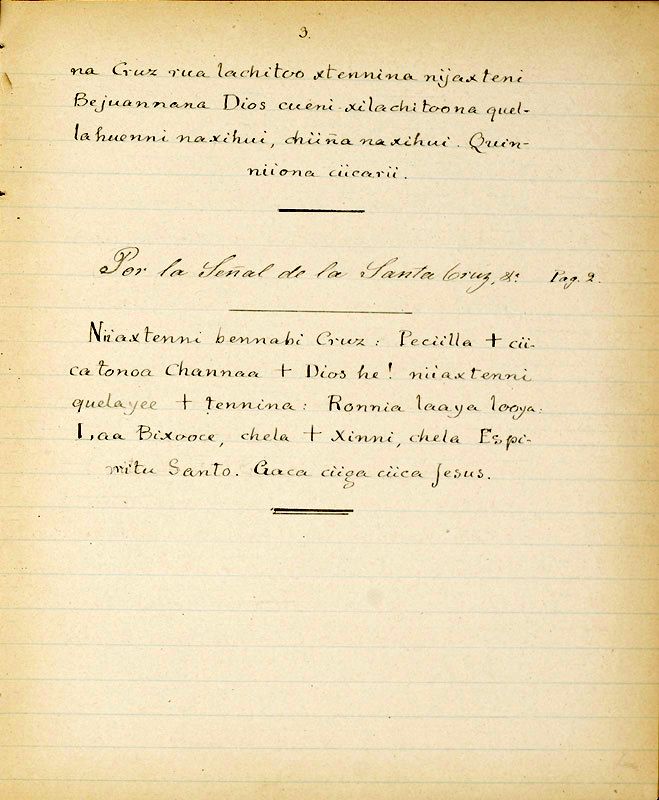 3.
na Cruz rua lachitoo xtennina nijaxteni
Bejuannana Dios cueni xilachitoona quel-
la huenni naxihui, chiiña naxihui. Quin-
niiona ciicarii.
Por la Señal de la Santa Cruz, &a. Pag. 2.
Niiaxtenni bennabi Cruz: Peciilla + cii-
catonoa Channaa + Dios he! niiaxtenni
quelayee + tennina: Ronnia laaya looya:
Laa Bixooce, chela + Xinni, chela Espi-
ritu Santo. Gaca ciiga ciica Jesus.